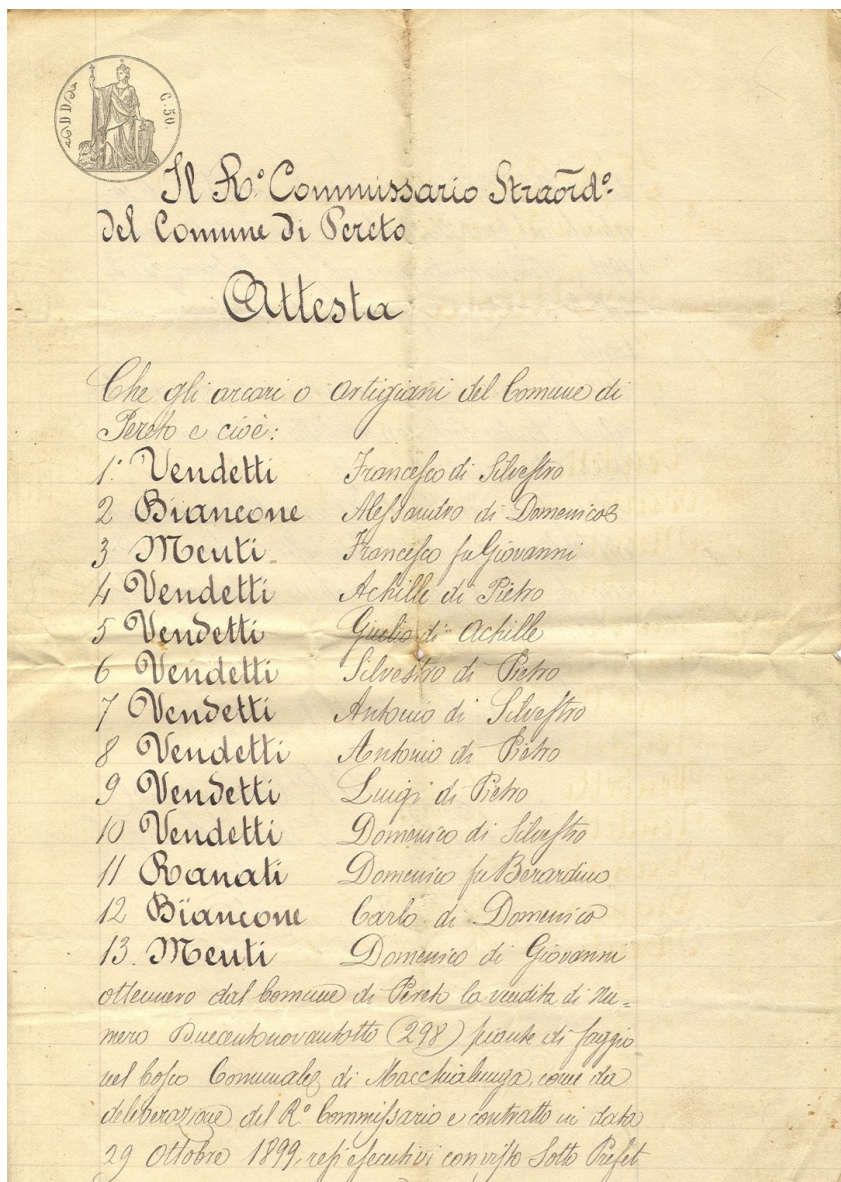 C. 50.
Il R.º Commissario Straord.º
del Comune di Pereto
Attesta
Che gli arcari o artigiani del Comune di
Pereto e cioè:
1º Vendetti Francesco di Silvestro
2 Biancone Alessandro di Domenico
3 Menti Francesco fu Giovanni
4 Vendetti Achille di Pietro
5 Vendetti Giulio di Achille
6 Vendetti Silvestro di Pietro
7 Vendetti Antonio di Silvestro
8 Vendetti Antonio di Pietro
9 Vendetti Luigi di Pietro
10 Vendetti Domenico di Silvestro
11 Ranati Domenico fu Berardino
12 Biancone Carlo di Domenico
13. Menti Domenico di Giovanni
ottennero dal Comune di Pereto la vendita di Nu=
mero Duecentonovantotto (298) piante di faggio
nel bosco Comunale di Macchialunga, come da
deliberazione del R.º Commissario e contratto in data
29 Ottobre 1899, resi esecutivi con visto Sotto Prefet